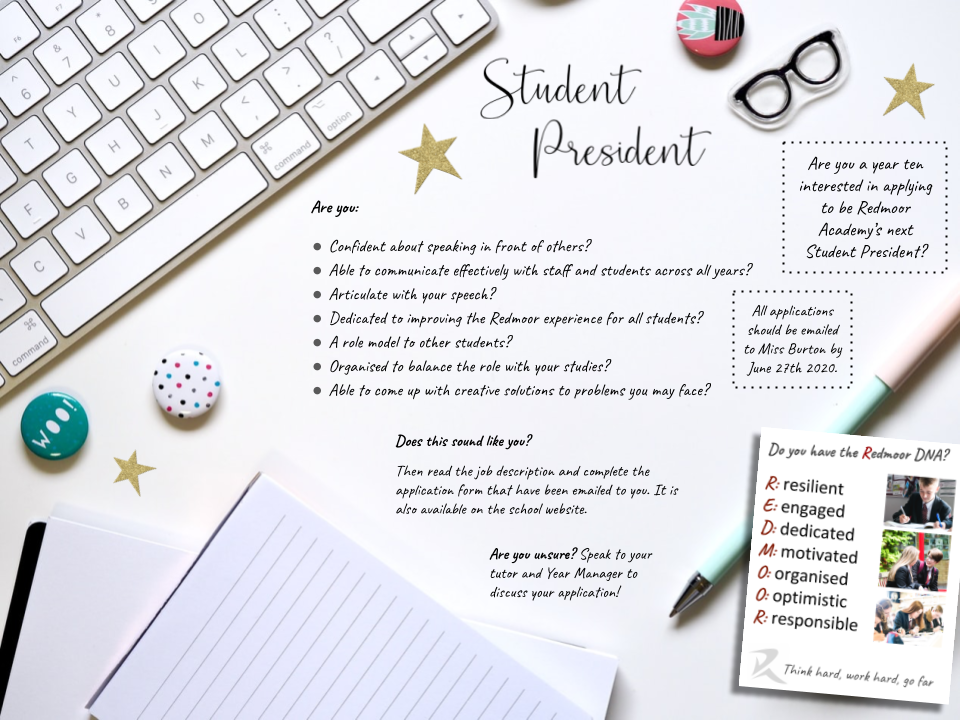 Student
President
Are you a year ten
interested in applying
to be Redmoor
Academy's next
Student President?
Are you:
Confident about speaking in front of others?
Able to communicate effectively with staff and students across all years?
Articulate with your speech?
Dedicated to improving the Redmoor experience for all students?
A role model to other students?
Organised to balance the role with your studies?
Able to come up with creative solutions to problems you may face?
All applications
should be emailed
to Miss Burton by
June 27th 2020.
Does this sound like you?
Then read the job description and complete the
application form that have been emailed to you. It is
also available on the school website.
Are you unsure? Speak to your
tutor and Year Manager to
discuss your application!
Do you have the Redmoor DNA?
R: resilient
E: engaged
D: dedicated
M: motivated
O: organised
O: optimistic
R: responsible
R Think hard, work hard, go far
WOO!
F6
F7
F8
^
6
&
7
*
8
(
9
)
0
T
Y
U
I
O
P
F
G
H
J
K
L
:
;
C
V
B
N
M
<
,
>
.
?
/
⌘
command
⌘
command
⌥
option